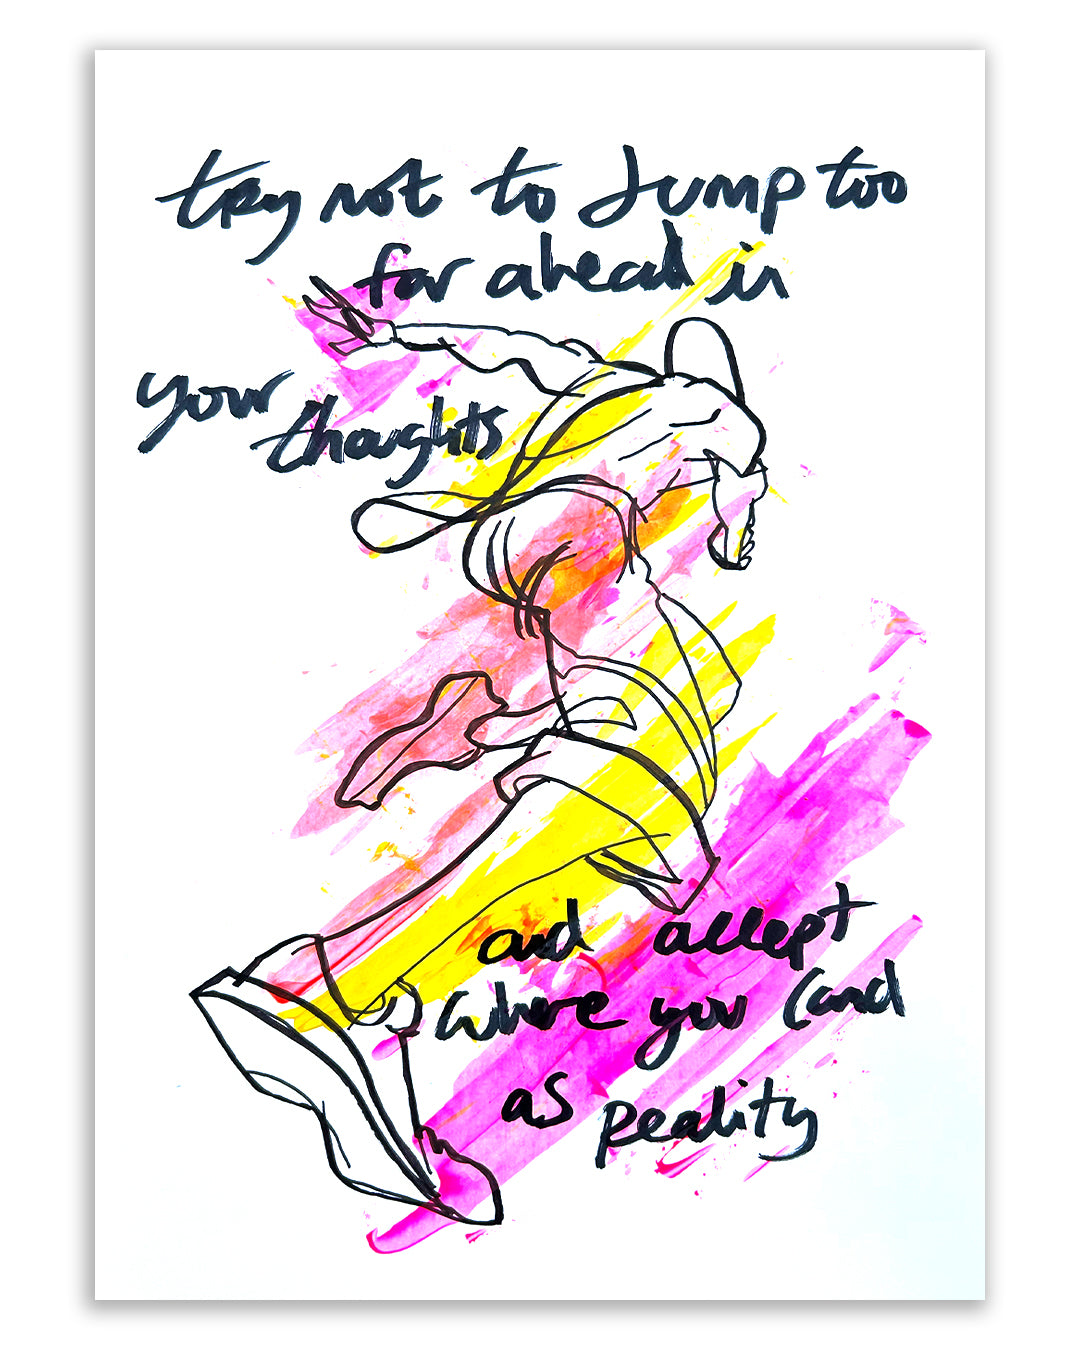 try not to Jump too
far ahead in
your thoughts
and accept
where you land
as reality